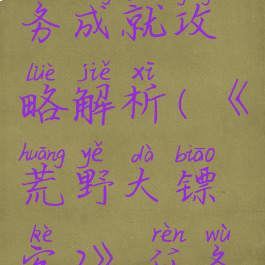 务成就攻
lüè jiě xī
略解析(《
huāng yě dà biāo
荒野大镖
kè rèn wù
客2》任务